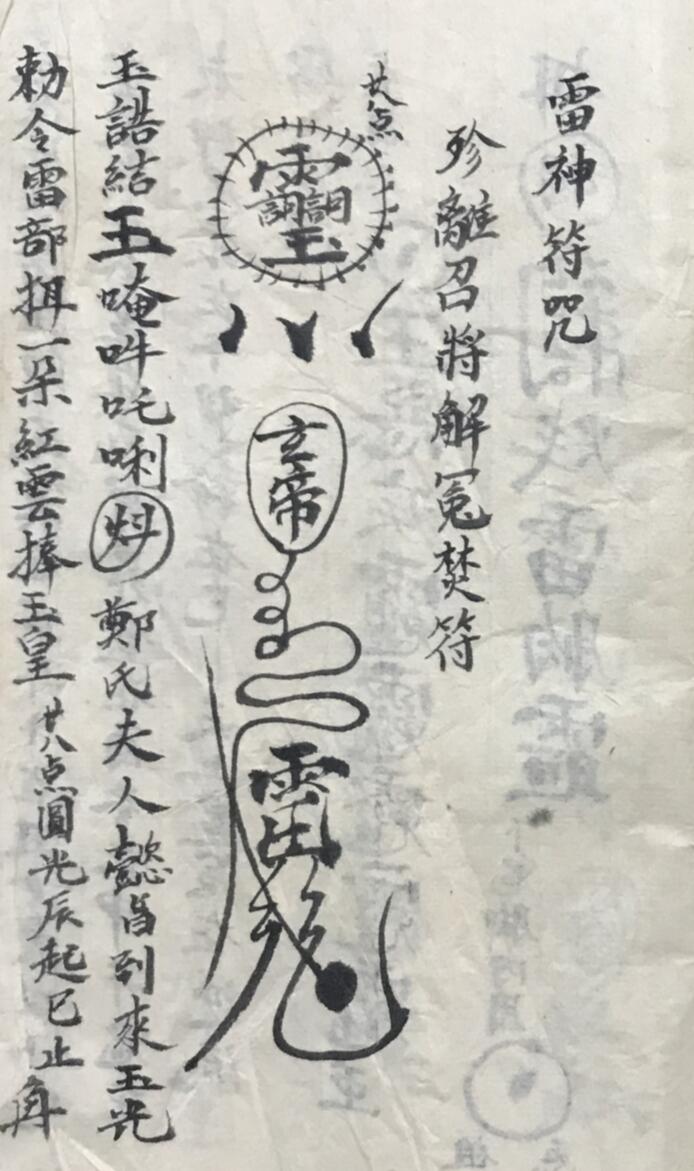 雷神符咒
珍離召將解冤焚符
廿八点
玄帝
玉誥結玉唵吽吒唎㪷鄭氏夫人懿旨到來玉光
勅令雷部揖一朵紅雲捧玉皇廿八点圓光辰起巳止再